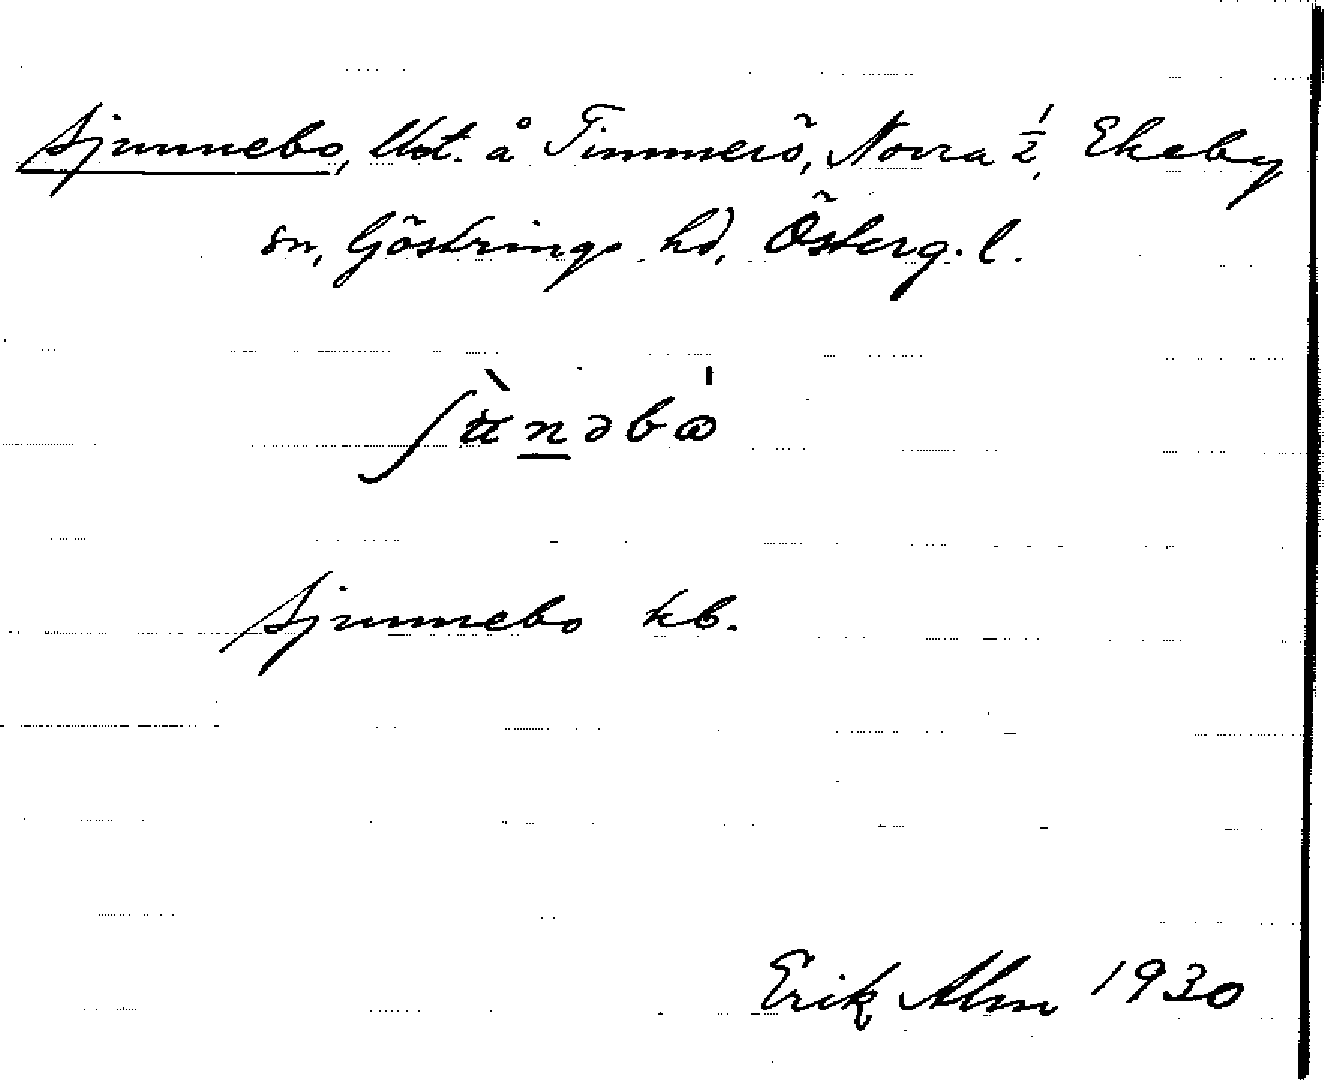 Sjunnebo, Uot. å Timmerö, Norra ½, Ekeby
sn, Göstrings hd, Österg. l.
Sjunnebo kb.
Erik Alm 1930